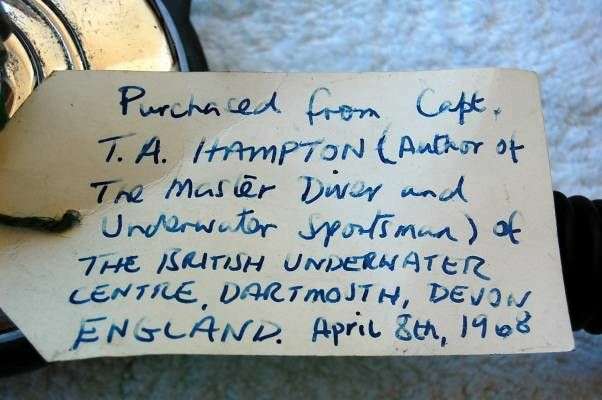 Purchased from Capt.
T. A. HAMPTON (Author of
The Master Diver and
Underwater Sportsman) of
THE BRITISH UNDERWATER
CENTRE, DARTMOUTH, DEVON
ENGLAND. April 8th, 1968